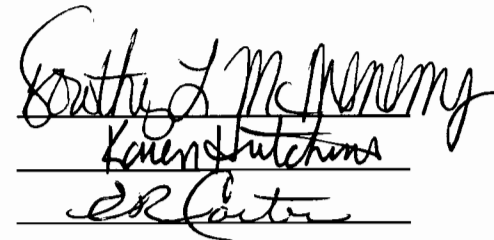 Dorothy L McMenemy
Karen Hutchins
ER Carter